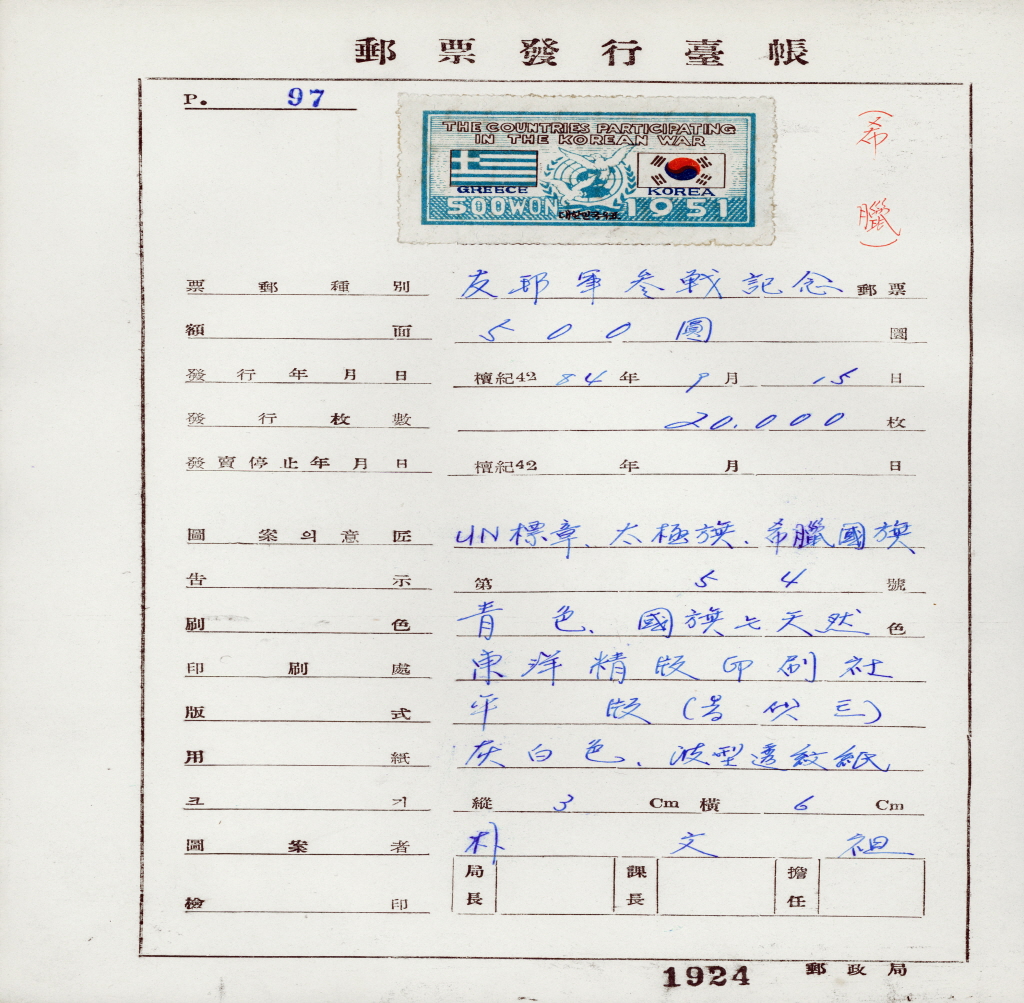 郵票發行臺帳
P. 97
THE COUNTRIES PARTICIPATING
IN THE KOREAN WAR
GREECE KOREA
500WON 대한민국우표 1951
(希臘)
票郵種別 友邦軍参戦記念 郵票
額面 500圓 圜
發行年月日 檀紀4284年 9月 15日
發行枚數 20.000 枚
發賣停止年月日 檀紀42 年 月 日
圖案의意匠 UN標章、太極旗、希臘國旗
告示 第54號
刷色 青色、國旗は天然色
印刷處 東洋精版印刷社
版式 平版
用紙 灰白色、波型透紋紙
크기 縱 3 Cm 橫 6 Cm
圖案者 朴文祖
檢印 局長 課長 擔任
1924 郵政局